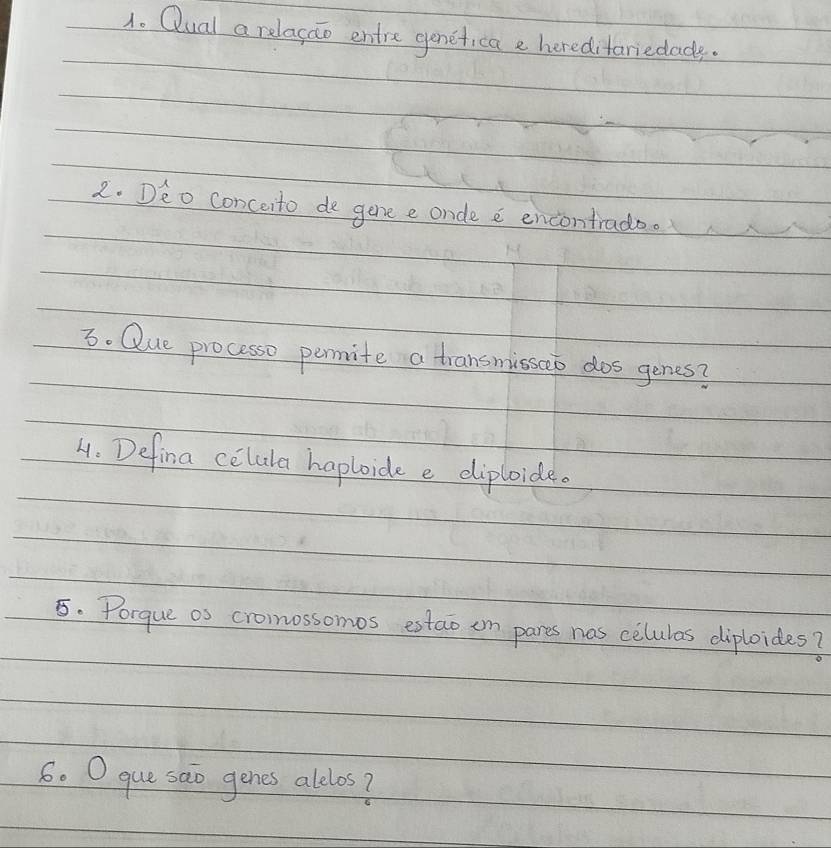 1. Qual a relação entre genética e hereditariedade.
2. Dê o conceito de gene e onde é encontrado.
3. Que processo permite a transmissão dos genes?
4. Defina célula haploide e diploide.
5. Porque os cromossomos estão em pares nas células diploides?
6. O que são genes alelos?